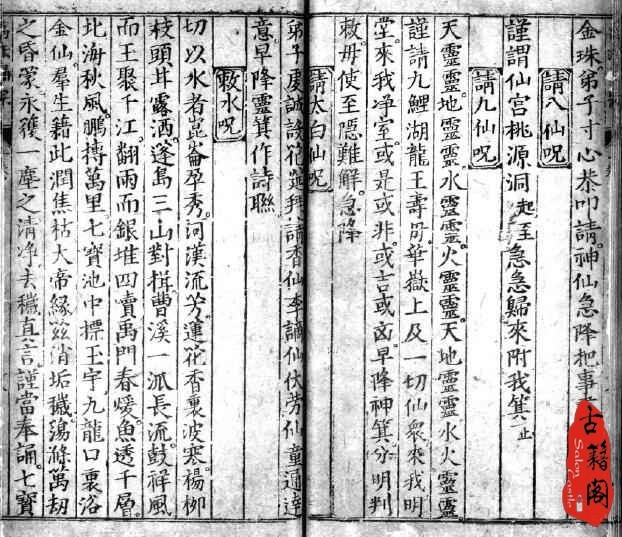 金珠弟子寸心恭叩請神仙急降把事
請八仙呪
謹謂仙宮桃源洞起至急急歸來附我箕止
請九仙呪
天靈靈地靈靈水靈靈火靈靈天地靈靈水火靈靈
謹請九鯉湖龍王壽華嶽上及一切仙衆來我明
堂來我净室或是或非或吉或凶早降神箕分明判
教毋使至隱難解急降
請太白仙呪
弟子虔誠設花筵拜請香仙李謫仙伏芳仙童通達
意早降靈箕作詩聯
敕水呪
切以水者崑崙孕秀河漢流芳蓮花香裏波寒楊柳
枝頭井露洒蓬島三山對揖曹溪一派長流鼓祥風
而王聚千江翻雨而銀堆四瀆禹門春煖魚透千層
北海秋風鵬摶萬里七寳池中標玉宇九龍口裏浴
金仙羣生籍此潤焦枯大帝緣茲消垢穢蕩滌萬劫
之昏蒙永獲一塵之清净去穢真言謹當奉誦七寳
古籍阁
Salon